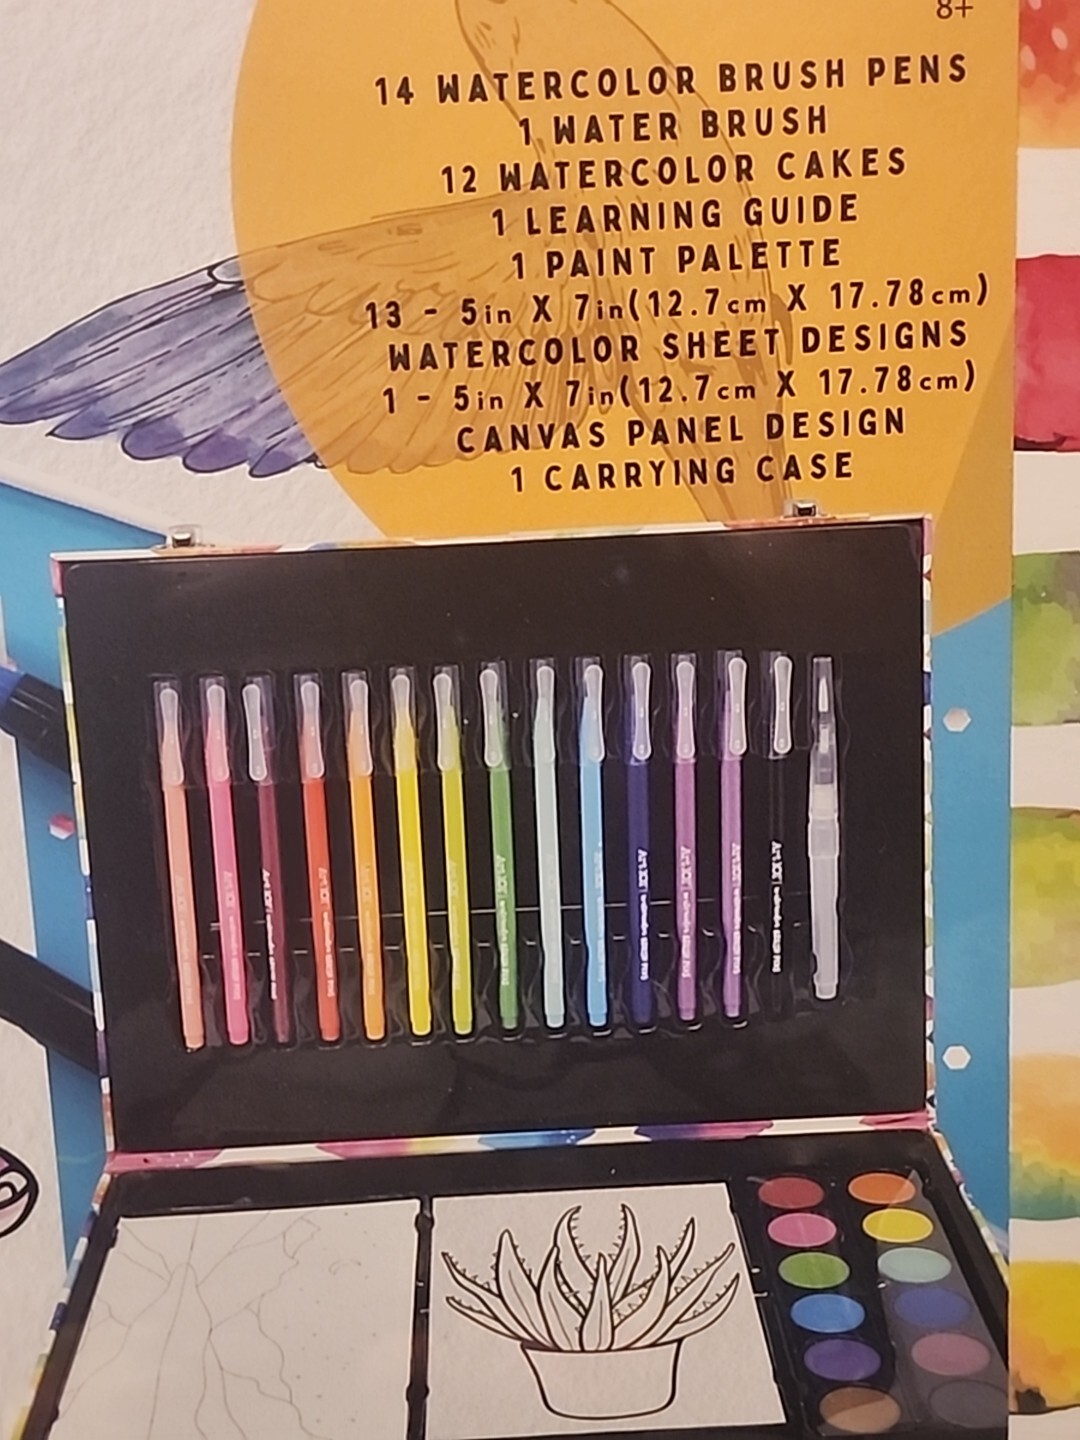 8+
14 WATERCOLOR BRUSH PENS
1 WATER BRUSH
12 WATERCOLOR CAKES
1 LEARNING GUIDE
1 PAINT PALETTE
13 - 5in X 7in(12.7cm X 17.78cm)
WATERCOLOR SHEET DESIGNS
1 - 5in X 7in(12.7cm X 17.78cm)
CANVAS PANEL DESIGN
1 CARRYING CASE